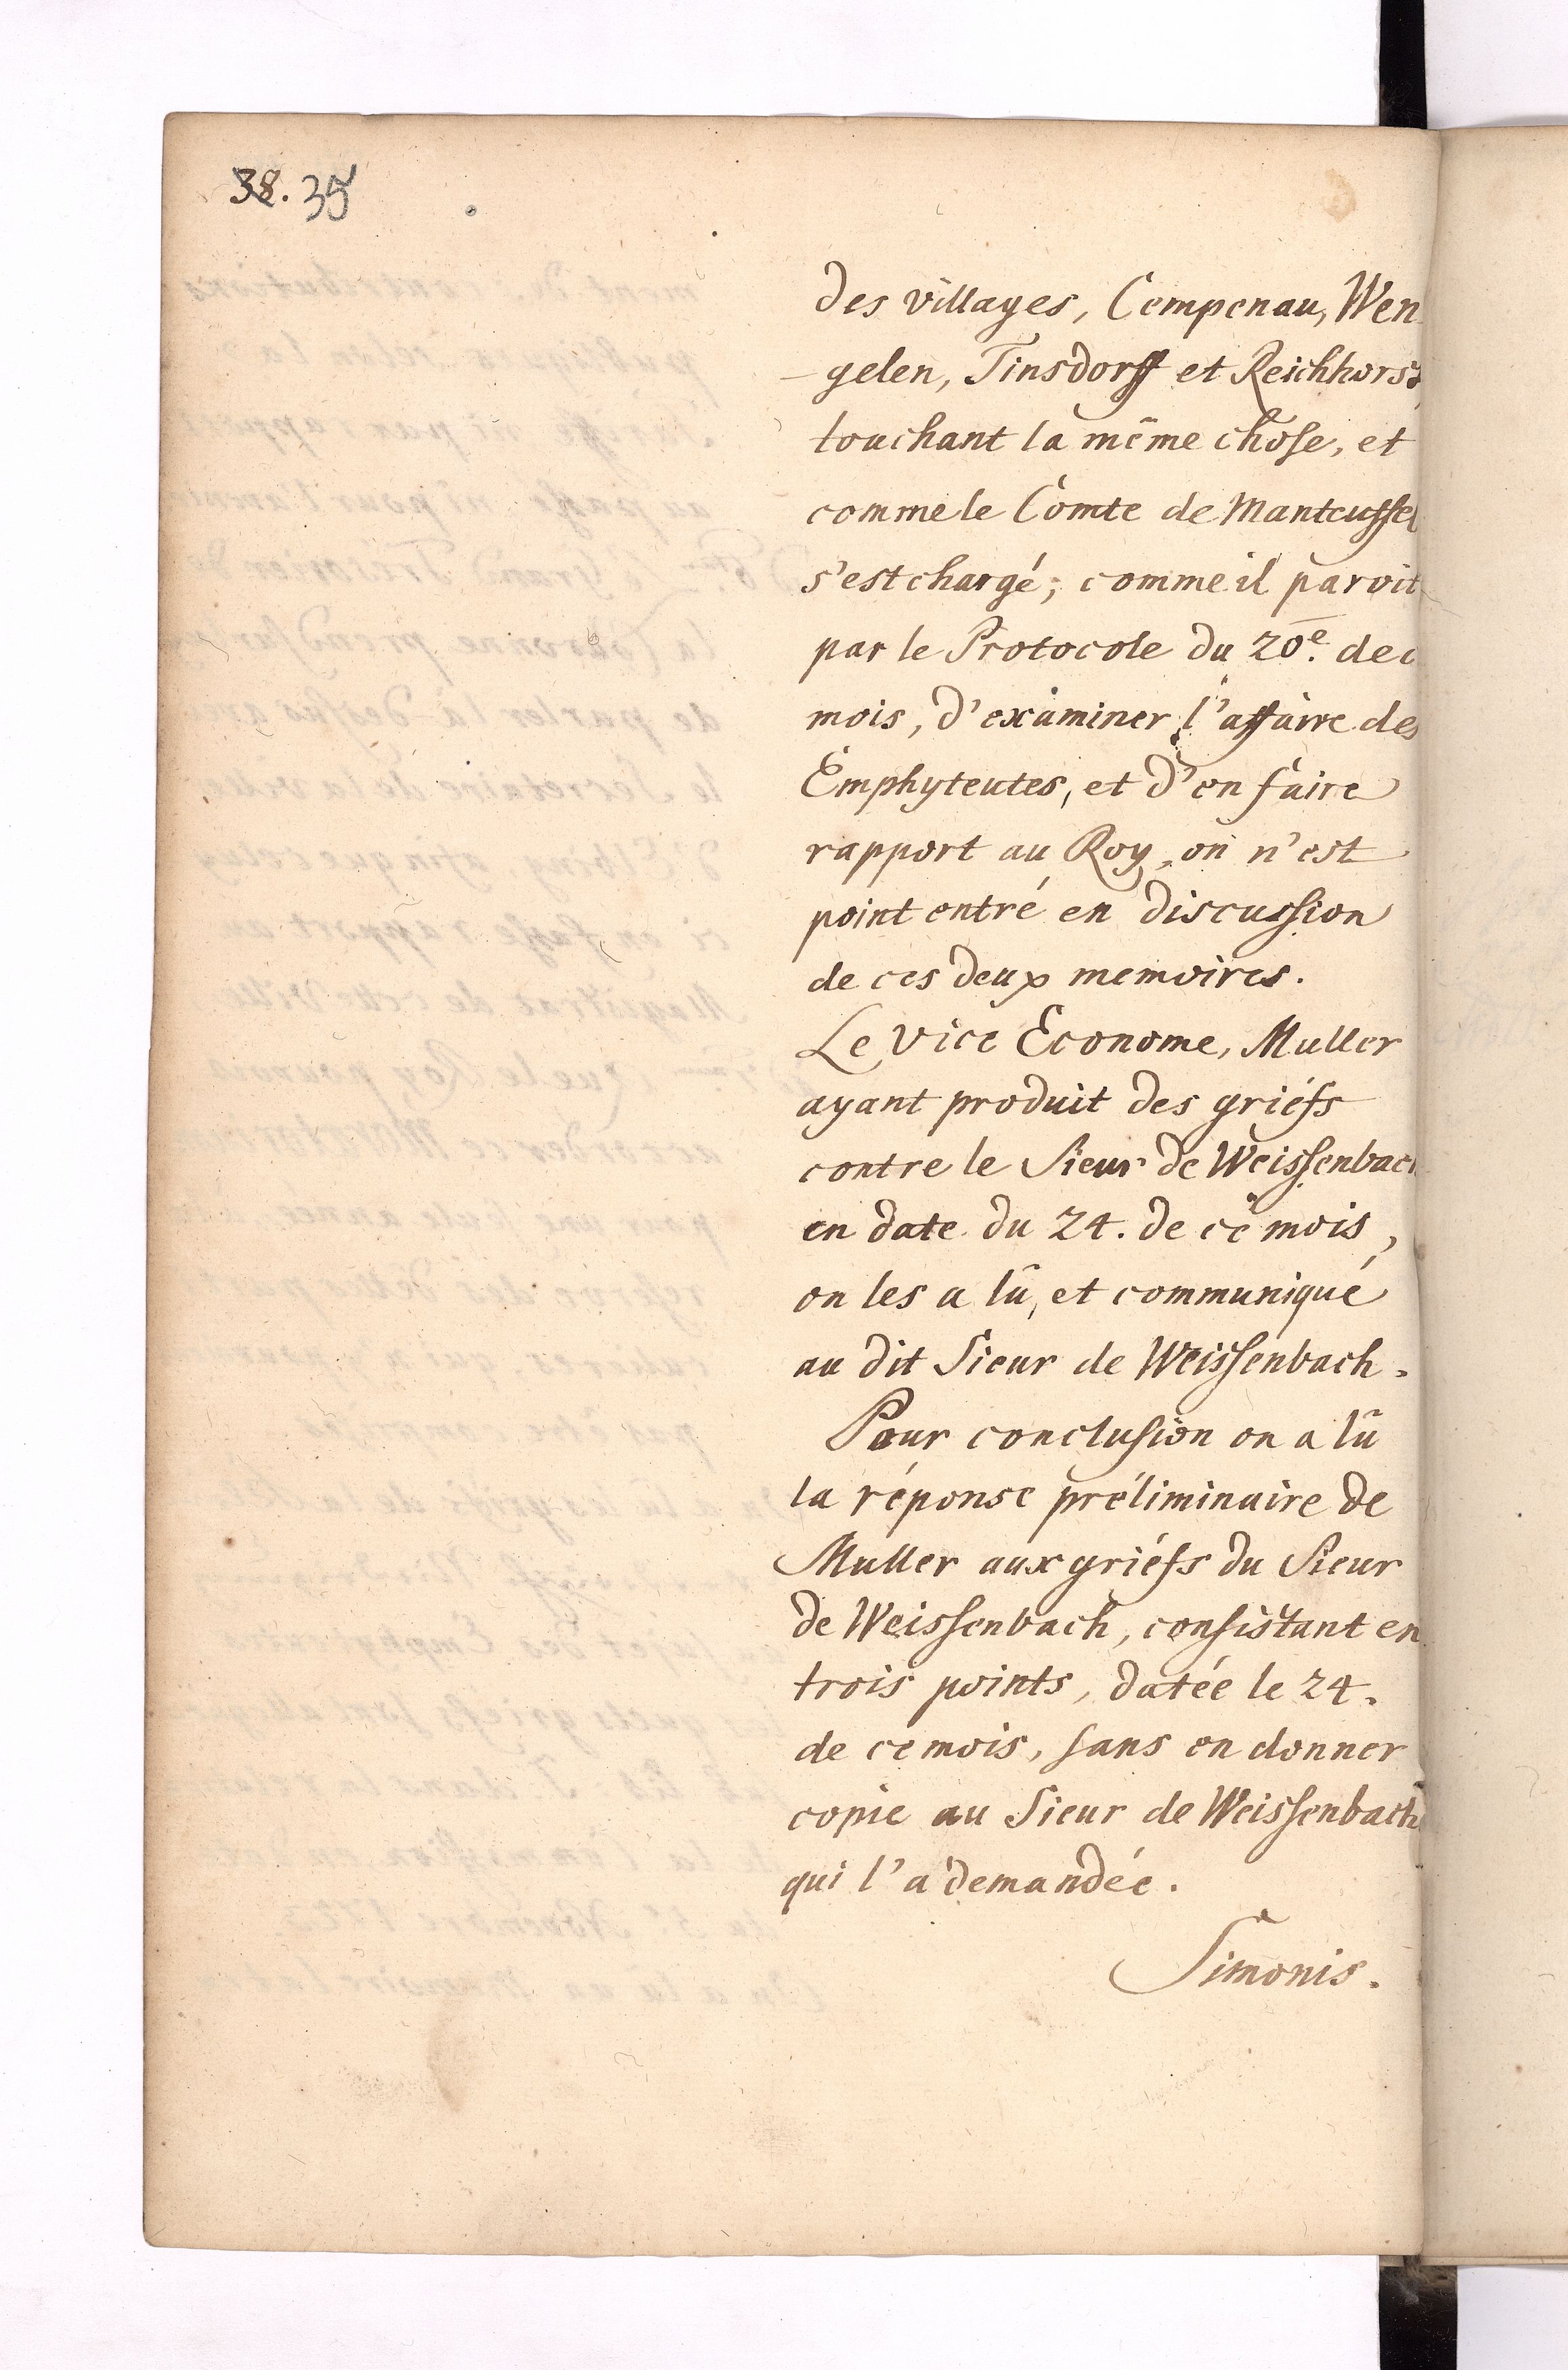 38. 35
des villages, Cempenau, Wen
-gelen, Tinsdorff et Reichhorst
touchant la même chose, et
comme le Comte de Manteuffel
s'est chargé; comme il paroit
par le Protocole du 20e. de c
mois, d'examiner l'affaire des
Emphyteutes, et d'en faire
rapport au Roy, on n'est
point entré en discussion
de ces deux memoires.
Le vice Econome, Muller
ayant produit des griéfs
contre le Sieur de Weissenbach
en date du 24. de ce mois,
on les a lû, et communiqué
au dit Sieur de Weissenbach.
Pour conclusion on a lû
la réponse préliminaire de
Muller aux griéfs du Sieur
de Weissenbach, consistant en
trois points, datée le 24.
de ce mois, sans en donner
copie au Sieur de Weissenbach
qui l'a demandée.
Simonis.